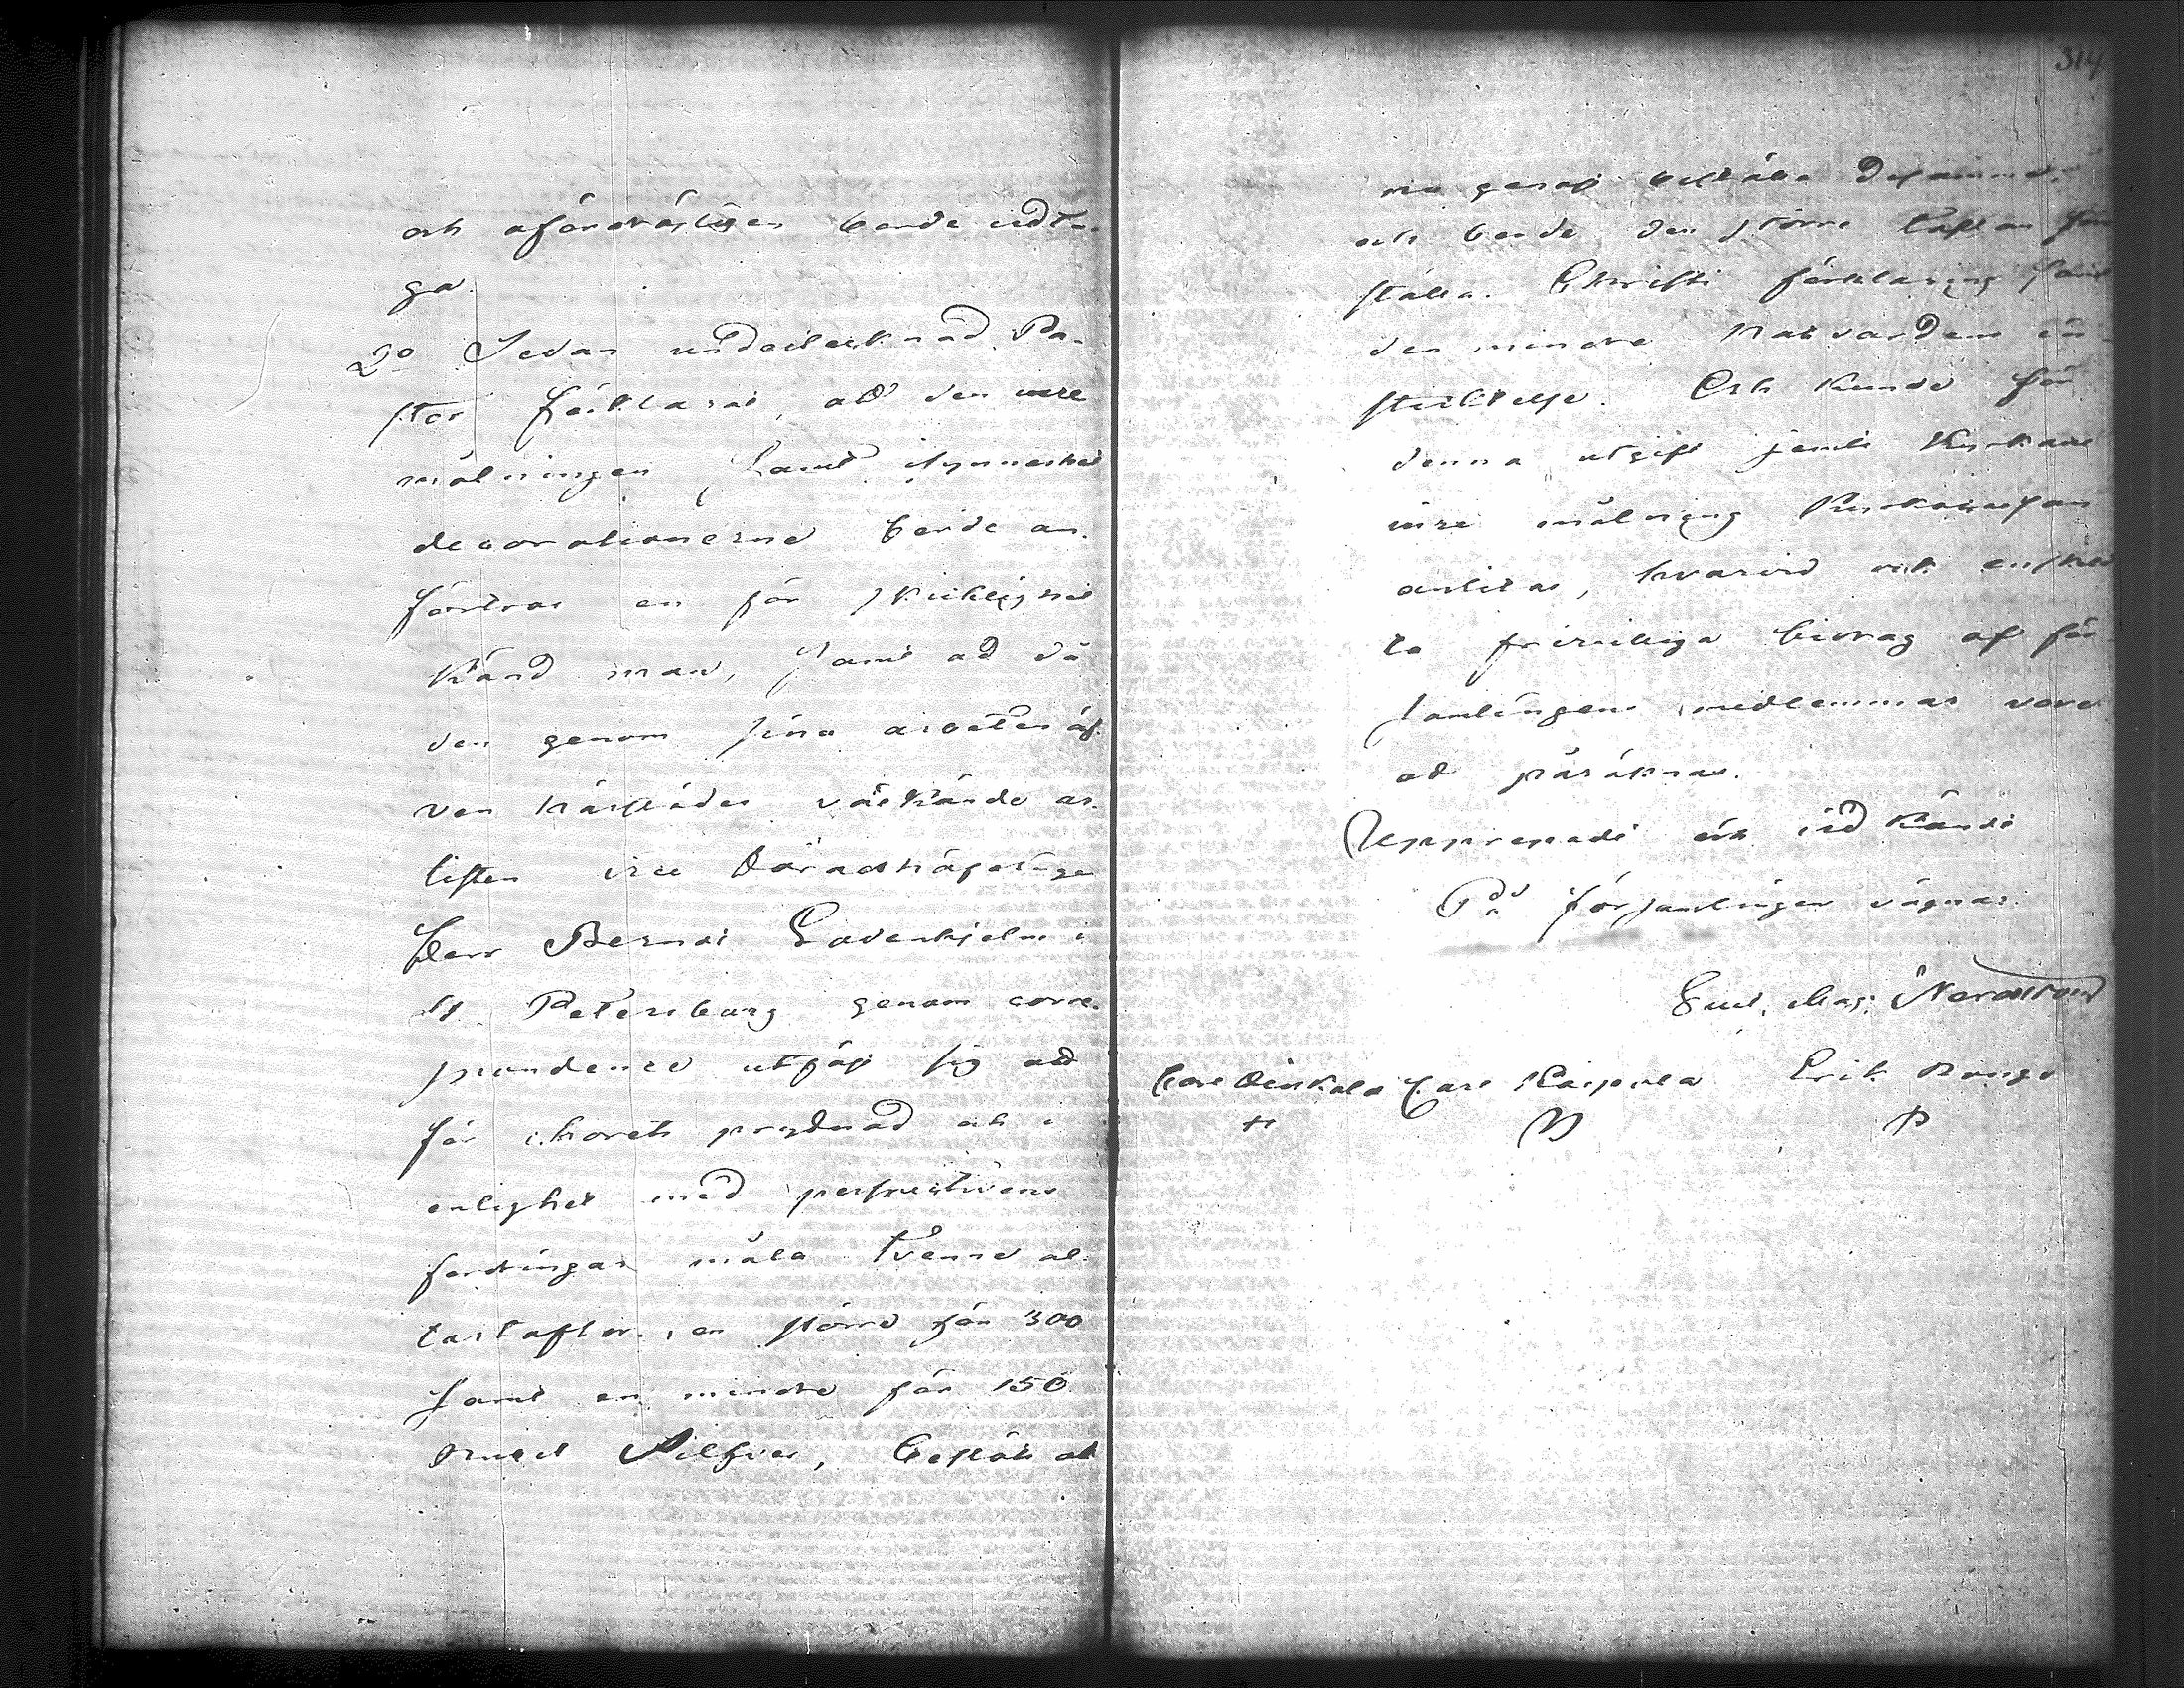 och oföretöfligen borde vidta-
ga.
2o Sedan undertecknad Pa-
stor förklarat, att den inre
målningen, samt i synnerhet
decorationerne borde an-
förtros en för skicklighet
känd man, samt att då
den genom sina arbeten äf-
ven härstädes välkände ar-
tisten vice Häradshöfdingen
Herr Berndt Godenhjelm i
St Petersburg genom corre-
spondence utfäst sig att
för chorets prydnad och i
enlighet med perspectivens
fordringar måla tvenne al-
tartaflor, en större för 300
samt en mindre för 150
Rubel Silfver, beslöts att
314
och borde den större taflan före
ställa Christi förklaring samt
den mindre Nattvardens in-
stiktelse. Och kunde för
denna utgift jemte kyrkans
inre målning Kyrkocassan
anlitas, hvarvid ock enskil
ta frivilliga bidrag af för
samlingens medlemmar vore
att påräknas.
Uppropade och vidkände
På församlingens vägnar:
Gust. Mag. Nordström
Carl Carl Kaipola Erik